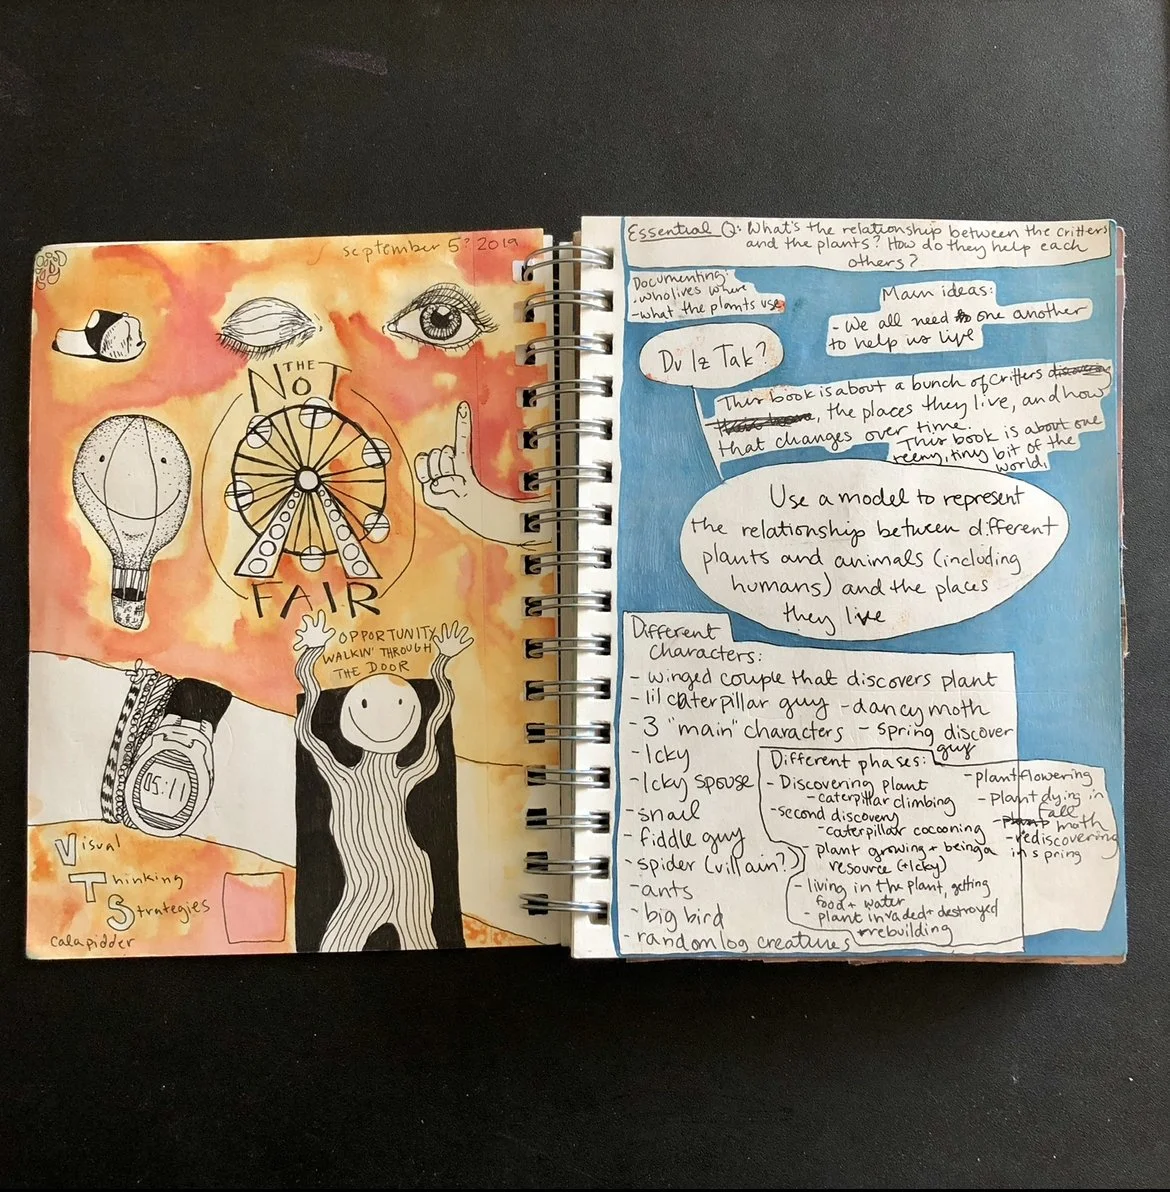 september 5th 2019
THE
NOT
FAIR
OPPORTUNITY
WALKIN' THROUGH
THE DOOR
05:11
Visual
Thinking
Strategies
calapidder
Essential Q: What's the relationship between the critters
and the plants? How do they help each
others?
Documenting:
- who lives where
- what the plants use
Main ideas:
- We all need one another
to help us live
Du Iz Tak?
- This book is about a bunch of critters
, the places they live, and how
that changes over time.
This book is about one
teeny, tiny bit of the
world.
Use a model to represent
the relationship between different
plants and animals (including
humans) and the places
they live
Different
characters:
- winged couple that discovers plant
- lil caterpillar guy - dancy moth
- 3 "main" characters - spring discover
guy
- Icky
- Icky spouse
- snail
- fiddle guy
- spider (villain?)
- ants
- big bird
- random log creatures
Different phases:
- Discovering plant
- caterpillar climbing
- second discovery
- caterpillar cocooning
- plant growing + being a
resource (+ Icky)
- living in the plant, getting
food + water
- plant invaded + destroyed
+ rebuilding
- plant flowering
- plant dying in
fall
- moth
- rediscovering
in spring